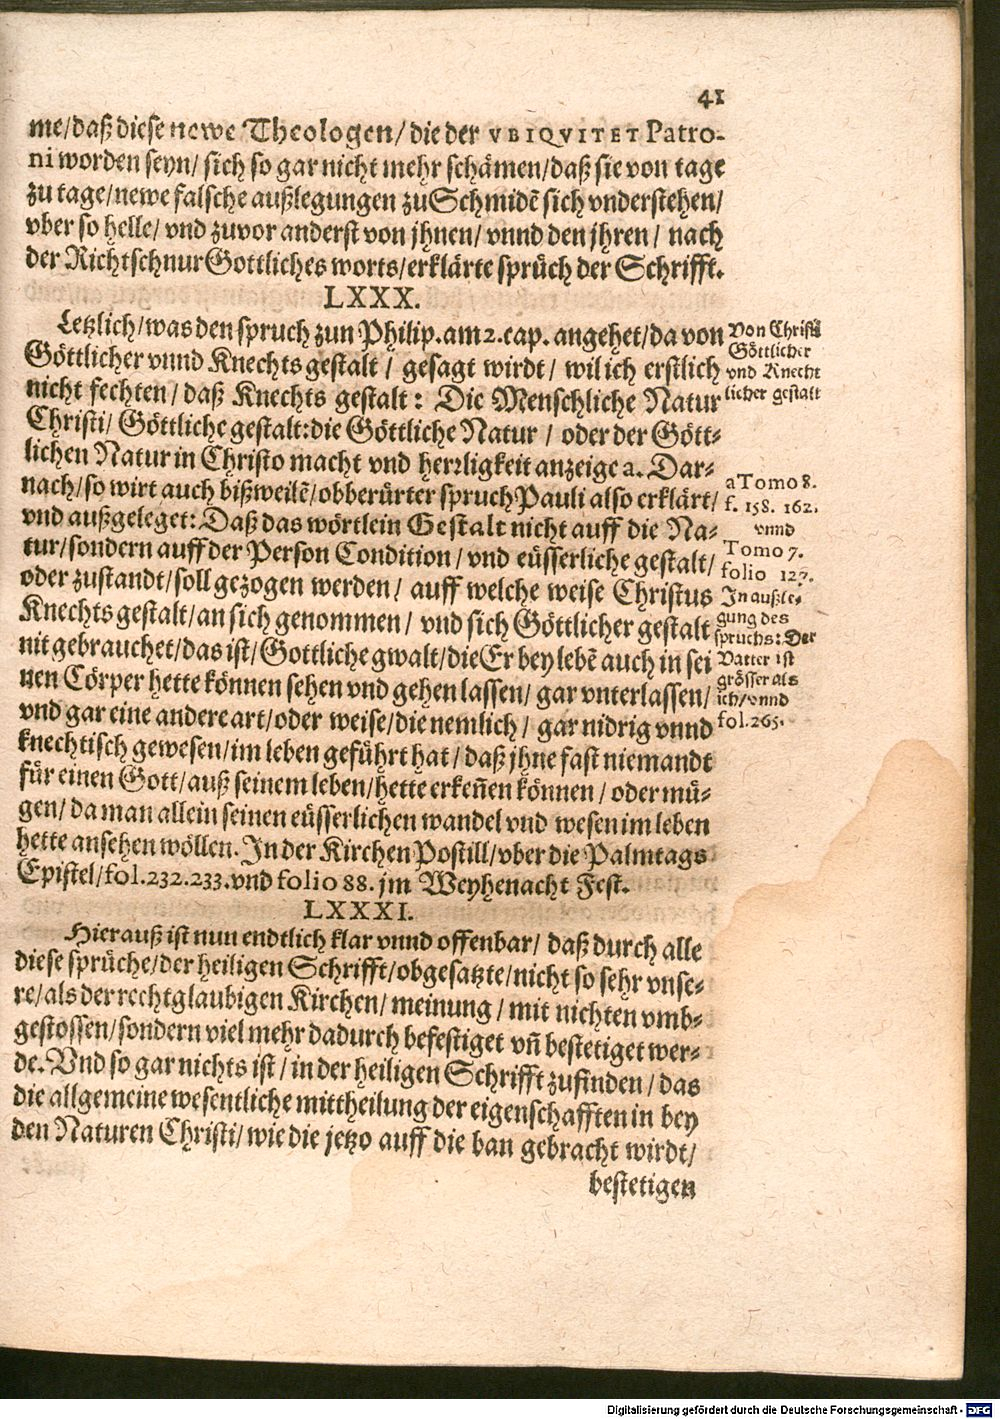 41
me/daß diese newe Theologen/ die der VBIQVITET Patro-
ni worden seyn/ sich so gar nicht mehr schämen/daß sie von tage
zu tage/newe falsche außlegungen zu Schmidẽ sich vnderstehen/
vber so helle/ vnd zuvor anderst von jhnen/ vnnd den jhren/ nach
der Richtschnur Gottliches worts/erklärte sprüch der Schrifft.
LXXX.
Letzlich/was den spruch zun Philip. am 2. cap. angehet/da von
Göttlicher vnnd Knechts gestalt/ gesagt wirdt/ wil ich erstlich
nicht fechten/ daß Knechts gestalt: Die Menschliche Natur
Christi/ Göttliche gestalt:die Göttliche Natur/ oder der Gött-
lichen Natur in Christo macht vnd herrligkeit anzeige a. Dar-
nach/so wirt auch bißweilẽ/obberürter spruch Pauli also erklärt/
vnd außgeleget: Daß das wörtlein Gestalt nicht auff die Na-
tur/sondern auff der Person Condition/ vnd eüsserliche gestalt/
oder zustandt/soll gezogen werden/ auff welche weise Christus
Knechts gestalt/an sich genommen/ vnd sich Göttlicher gestalt
nit gebrauchet/das ist/Gottliche gwalt/die Er bey lebẽ auch in sei
nen Cörper hette können sehen vnd gehen lassen/ gar vnterlassen/
vnd gar eine andere art/oder weise/die nemlich/ gar nidrig vnnd
knechtisch gewesen/im leben geführt hat/ daß jhne fast niemandt
für einen Gott/auß seinem leben/hette erkeñen können/ oder mü-
gen/ da man allein seinen eüsserlichen wandel vnd wesen im leben
hette ansehen wöllen. In der Kirchen Postill/vber die Palmtags
Epistel/fol.232.233.vnd folio 88. jm Weyhenacht Fest.
Von Christi
Göttlicher
vnd Knecht
licher gestalt
a Tomo 8.
f. 158. 162.
vnnd
Tomo 7.
folio 127.
In außle-
gung des
spruchs: Der
Vatter ist
grösser als
ich/vnnd
fol.265.
LXXXI.
Hierauß ist nun endtlich klar vnnd offenbar/ daß durch alle
diese sprüche/der heiligen Schrifft/obgesatzte/nicht so sehr vnse-
re/als der rechtglaubigen Kirchen/ meinung/ mit nichten vmb-
gestossen/sondern viel mehr dadurch befestiget vñ bestetiget wer-
de. Vnd so gar nichts ist/ in der heiligen Schrifft zufinden/ das
die allgemeine wesentliche mittheilung der eigenschafften in bey
den Naturen Christi/ wie die jetzo auff die ban gebracht wirdt/
bestetigen
Digitalisierung gefördert durch die Deutsche Forschungsgemeinschaft - DFG